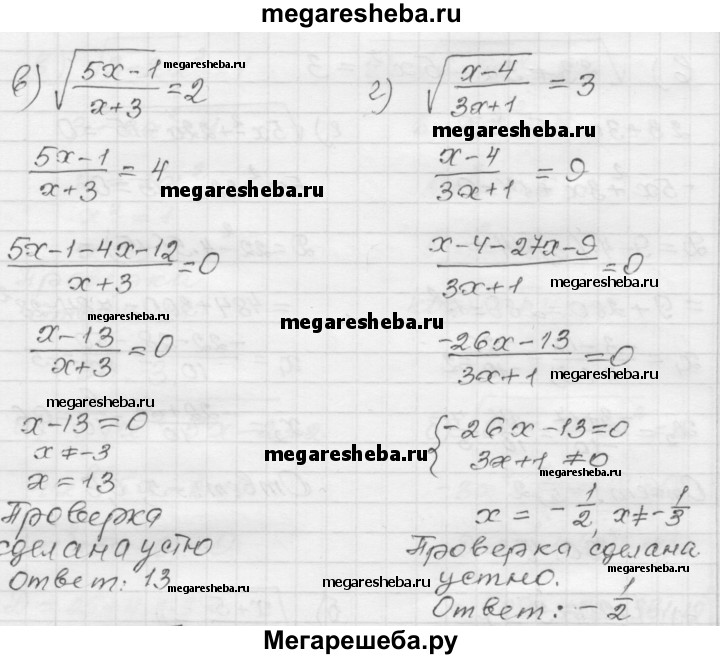 megaresheba.ru
в) √((5x-1)/(x+3)) = 2
megaresheba.ru
(5x-1)/(x+3) = 4
megaresheba.ru
(5x-1-4x-12)/(x+3) = 0
megaresheba.ru
(x-13)/(x+3) = 0
megaresheba.ru
x-13=0
x≠-3
x=13
Проверка
сделана устно
Ответ: 13
megaresheba.ru
г) √((x-4)/(3x+1)) = 3
megaresheba.ru
(x-4)/(3x+1) = 9
megaresheba.ru
(x-4-27x-9)/(3x+1) = 0
megaresheba.ru
megaresheba.ru
(-26x-13)/(3x+1) = 0
megaresheba.ru
{-26x-13=0
3x+1≠0
megaresheba.ru
megaresheba.ru
x = -1/2, x≠-1/3
megaresheba.ru
Проверка сделана
устно.
megaresheba.ru
Ответ: -1/2
megaresheba.ru
Мегарешеба.ру